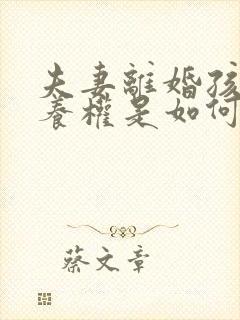 夫妻離婚孩
養權是如何
蔡文章